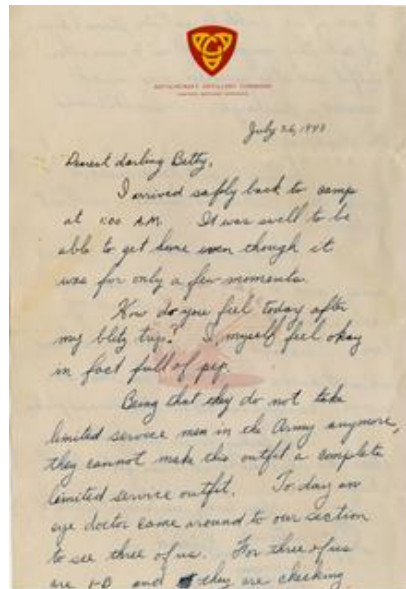 ANTIAIRCRAFT ARTILLERY COMMAND
EASTERN DEFENSE COMMAND
July 26, 1943
Dearest darling Betty,
I arrived safly back to camp
at 1:00 A.M. It was swell to be
able to get home even though it
was for only a few moments.
How do you feel today after
my blitz trip? I, myself feel okay
in fact full of pep.
Being that they do not take
limited service men in the Army anymore,
they cannot make this outfit a complete
limited service outfit. Today an
eye doctor came around to our section
to see three of us. For three of us
are 1-B and they are checking